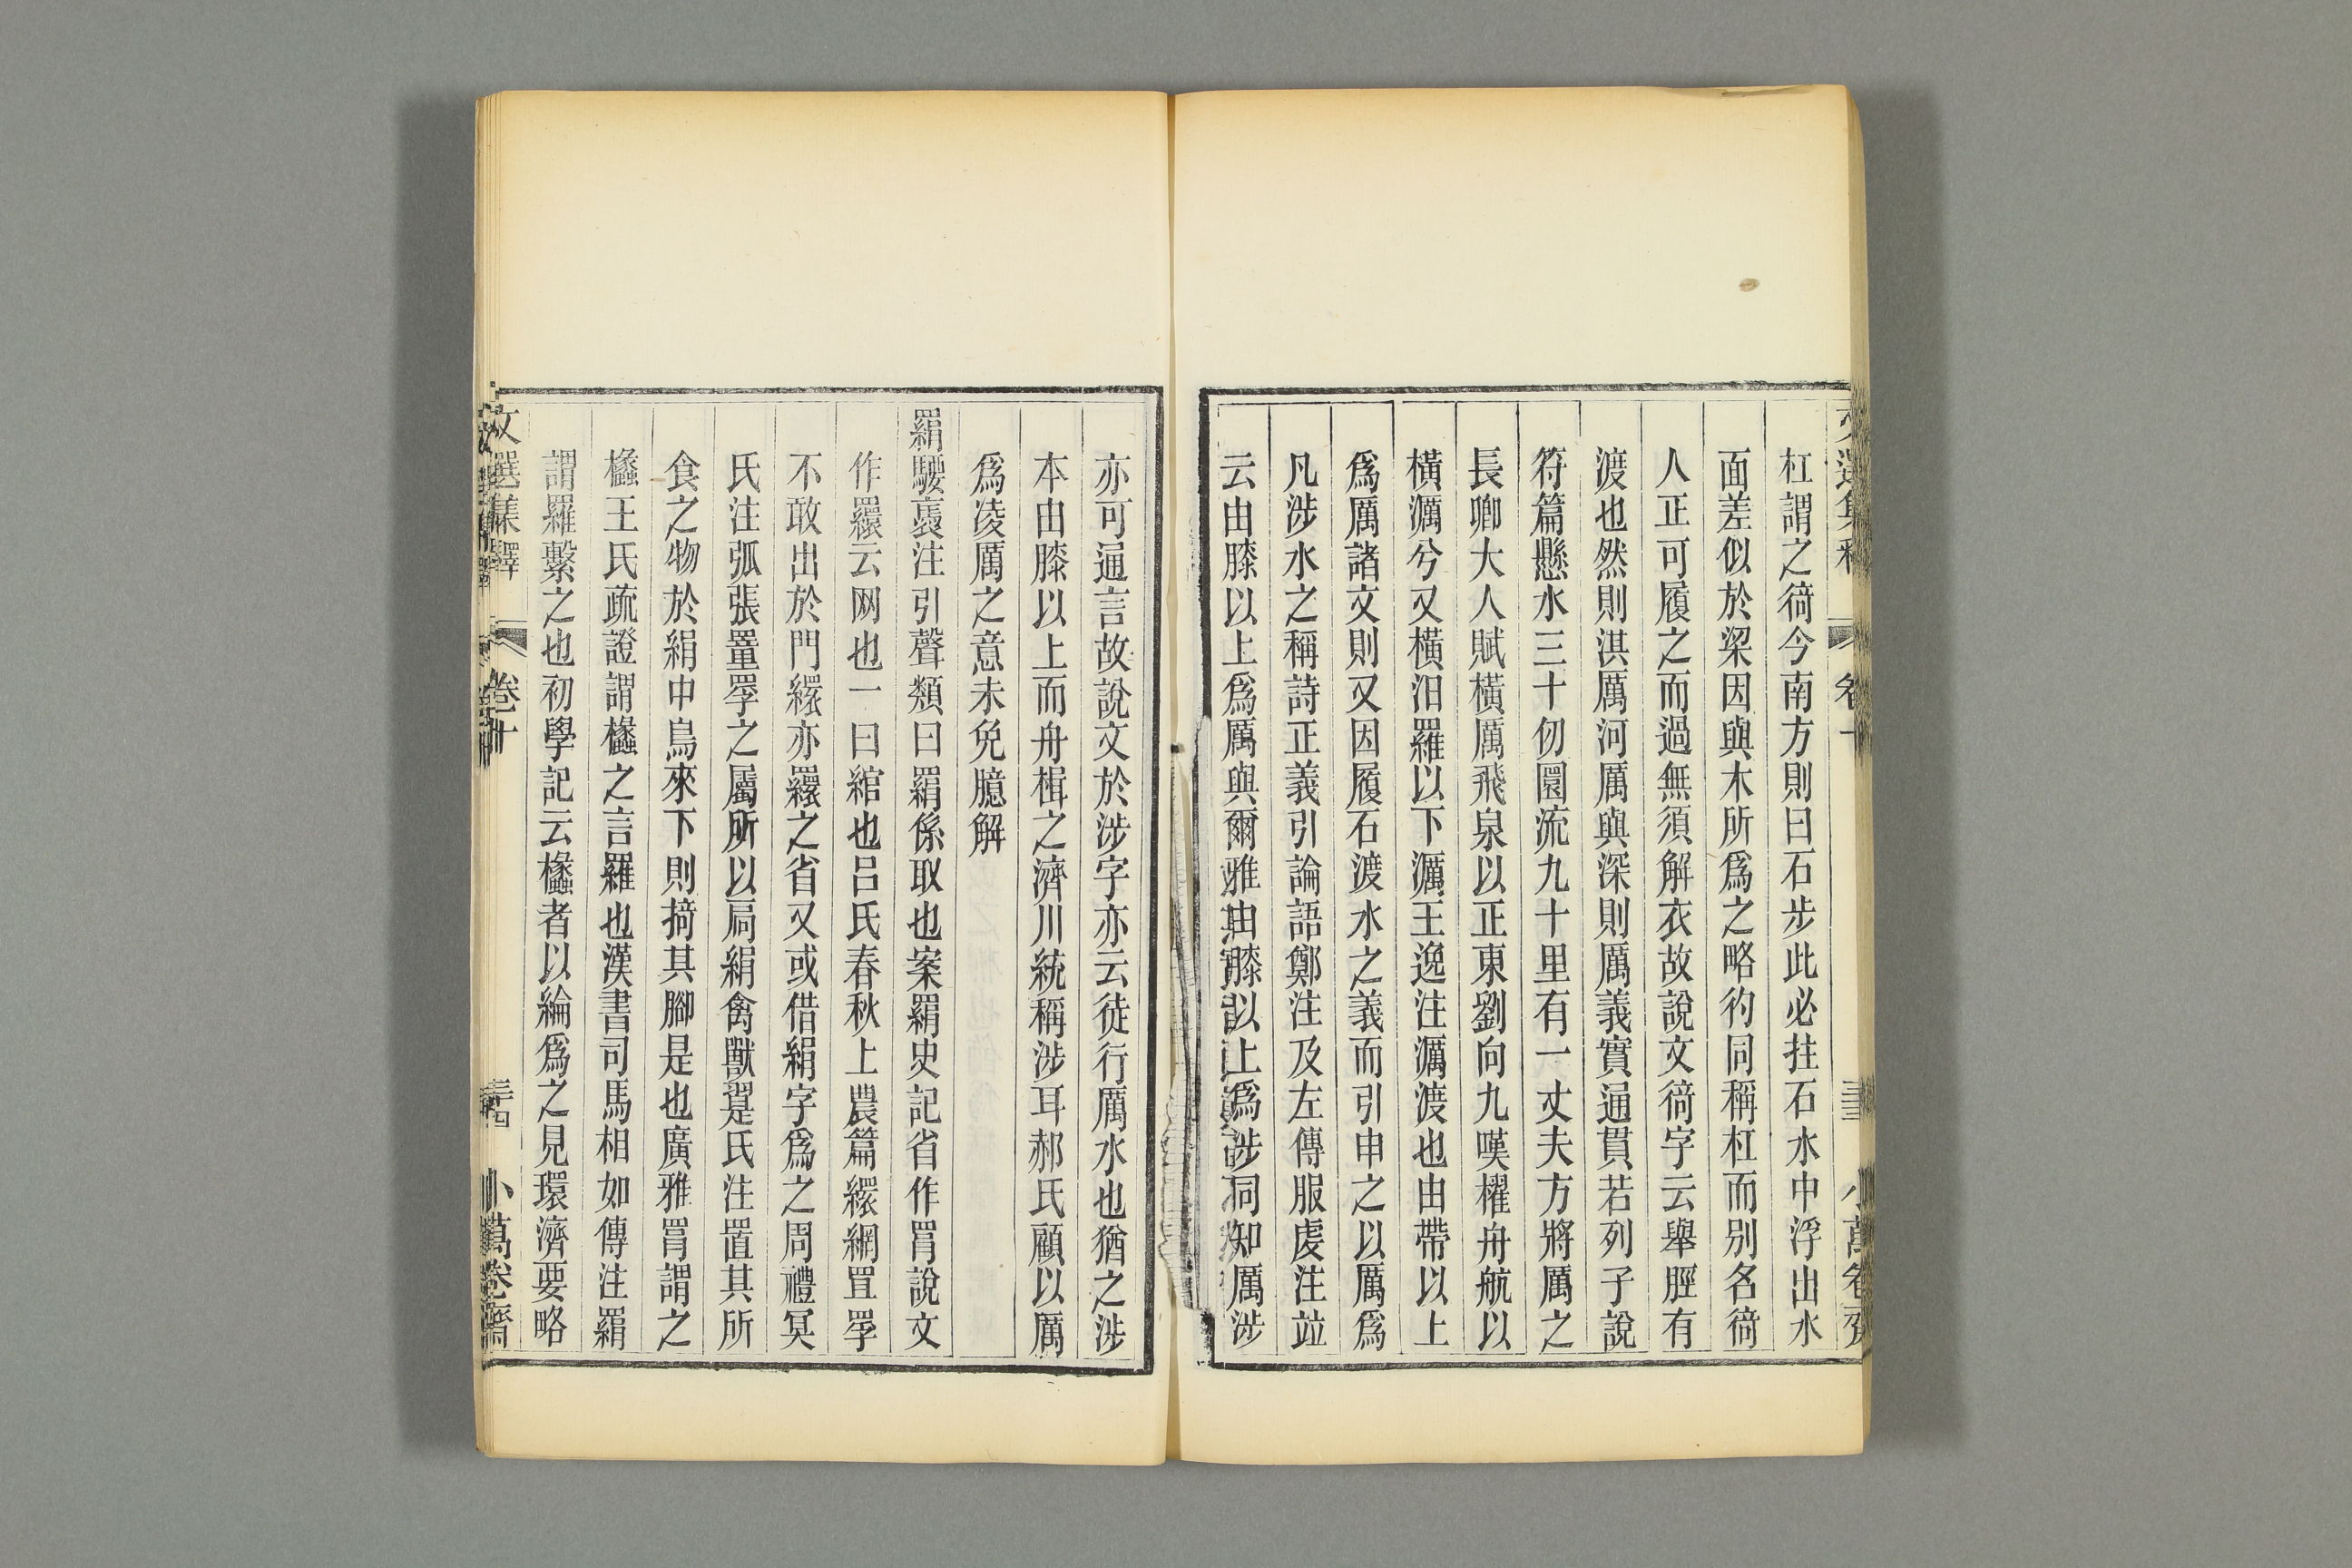 杠謂之徛今南方則曰石步此必拄石水中浮出水
面差似於梁因與木所爲之略彴同稱杠而别名徛
人正可履之而過無須解衣故說文徛字云舉脛有
渡也然則淇厲河厲與深則厲義實通貫若列子說
符篇懸水三十仞圜流九十里有一丈夫方將厲之
長卿大人賦橫厲飛泉以正東劉向九嘆櫂舟航以
橫濿兮又橫汨羅以下濿王逸注濿渡也由帶以上
爲厲諸文則又因履石渡水之義而引申之以厲爲
凡涉水之稱詩正義引論語鄭注及左傳服虔注竝
云由膝以上爲厲與爾雅由膝以上爲涉同知厲涉
亦可通言故說文於涉字亦云徒行厲水也猶之涉
本由膝以上而舟楫之濟川統稱涉耳郝氏顧以厲
爲凌厲之意未免臆解
羂騕褭注引聲類曰羂係取也案羂史記省作罥說文
作羂云网也一曰綰也呂氏春秋上農篇繯網罝罦
不敢出於門繯亦羂之省又或借絹字爲之周禮冥
氏注弧張罿罦之屬所以扃絹禽獸翨氏注置其所
食之物於絹中鳥來下則掎其腳是也廣雅罥謂之
𣟄王氏疏證謂𣟄之言羅也漢書司馬相如傳注羂
謂羅繫之也初學記云𣟄者以綸爲之見環濟要略
文選集釋
卷十
三十四
小萬卷齋